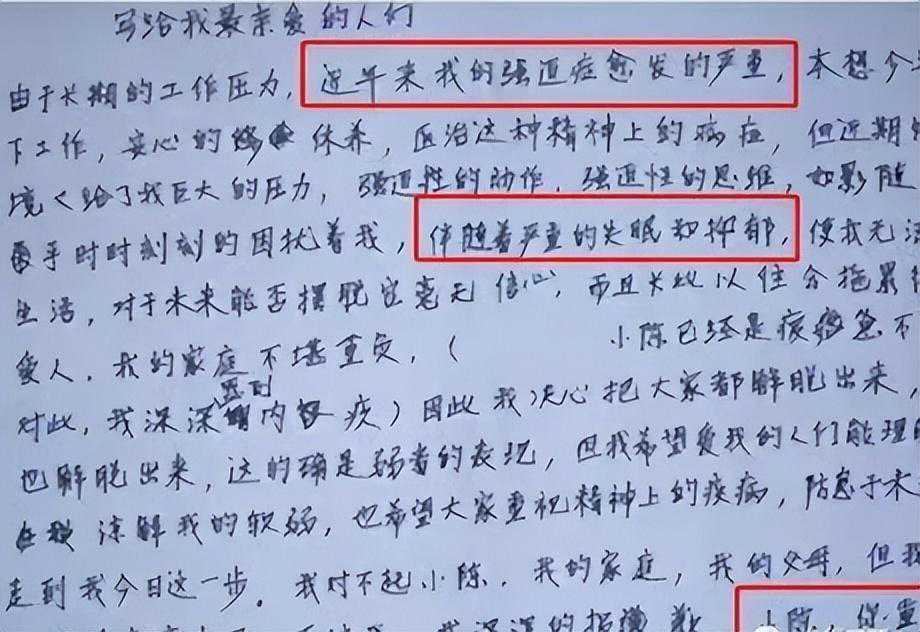 写给我最亲爱的人们
由于长期的工作压力，近年来我的强迫症愈发的严重，本想今
下工作，安心的修 休养，医治这种精神上的病症，但近期
境 给了我巨大的压力，强迫性的动作，强迫性的思维，如影随
乎时时刻刻的困扰着我，伴随着严重的失眠和抑郁，使我无法
生活，对于未来能否摆脱它毫无信心，而且长此以往会拖累
爱人，我的家庭不堪重负，（ 小陈已经是疲惫 不
对此，我深深感到内 疚）因此我决心把大家都解脱出来，
也解脱出来，这的确是弱者的表现，但我希望爱我的人们能理
谅解我的软弱，也希望大家重视精神上的疾病，防患于未
走到我今日这一步。我对不起小陈，我的家庭，我的父母，但我
我深深的抱 歉 小陈，保重